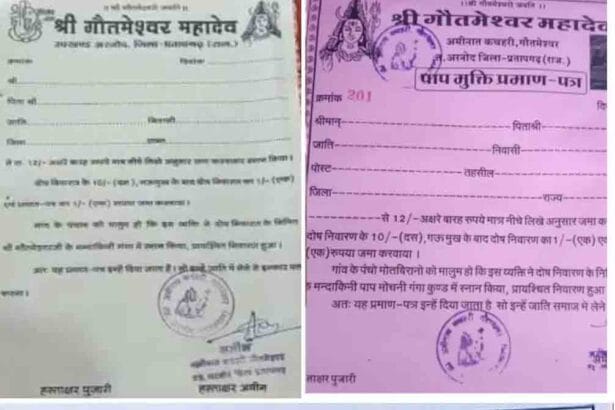 ॥ श्री गौतमेश्वरी जयति ॥
श्री गौतमेश्वर महादेव
उपखण्ड अरनोद, जिला-प्रतापगढ़ (राज.)
क्रमांक दिनांक
श्री
पिता श्री
जाति निवासी
जिला राज्य
से रु. 12/- अक्षरे बारह रुपये मात्र नीचे लिखे अनुसार जमा करवाकर प्रदान किया।
दोष निवारण के 10/- (दस), गऊमुख के बाद दोष निवारण का 1/- (एक)
एवं प्रमाण-पत्र का 1/- (एक) रुपया जमा करवाया।
गांव के पंचान को मालूम हो कि इस व्यक्ति ने दोष निवारण के निमित्त
श्री गौतमेश्वरजी के मन्दाकिनी गंगा में स्नान किया, प्रायश्चित निवारण हुआ।
अतः यह प्रमाण-पत्र इन्हें दिया जाता है। सो इन्हें जाति में लेने से इनकार
करना।
अमीन
हस्ताक्षर पुजारी हस्ताक्षर अमीन
॥ श्री गौतमेश्वरी जयति ॥
श्री गौतमेश्वर महादेव
अमीनात कचहरी, गौतमेश्वर
त. अरनोद जिला-प्रतापगढ़ (राज.)
पाप मुक्ति प्रमाण-पत्र
क्रमांक 201 दि
श्रीमान् पिताश्री
जाति निवासी
पोस्ट तहसील
जिला राज्य
से 12/- अक्षरे बारह रूपये मात्र नीचे लिखे अनुसार जमा क
दोष निवारण के 10/- (दस), गऊ मुख के बाद दोष निवारण का 1/- (एक) ए
(एक)रूपया जमा करवाया।
गांव के पंचो मोतबिरानो को मालूम हो कि इस व्यक्ति ने दोष निवारण के नि
के मन्दाकिनी पाप मोचनी गंगा कुण्ड में स्नान किया, प्रायश्चित निवारण हुआ
अतः यह प्रमाण-पत्र इन्हें दिया जाता है सो इन्हें जाति समाज मे लेने
ताक्षर पुजारी